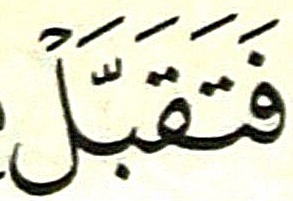 فَتَقَبَّلْ